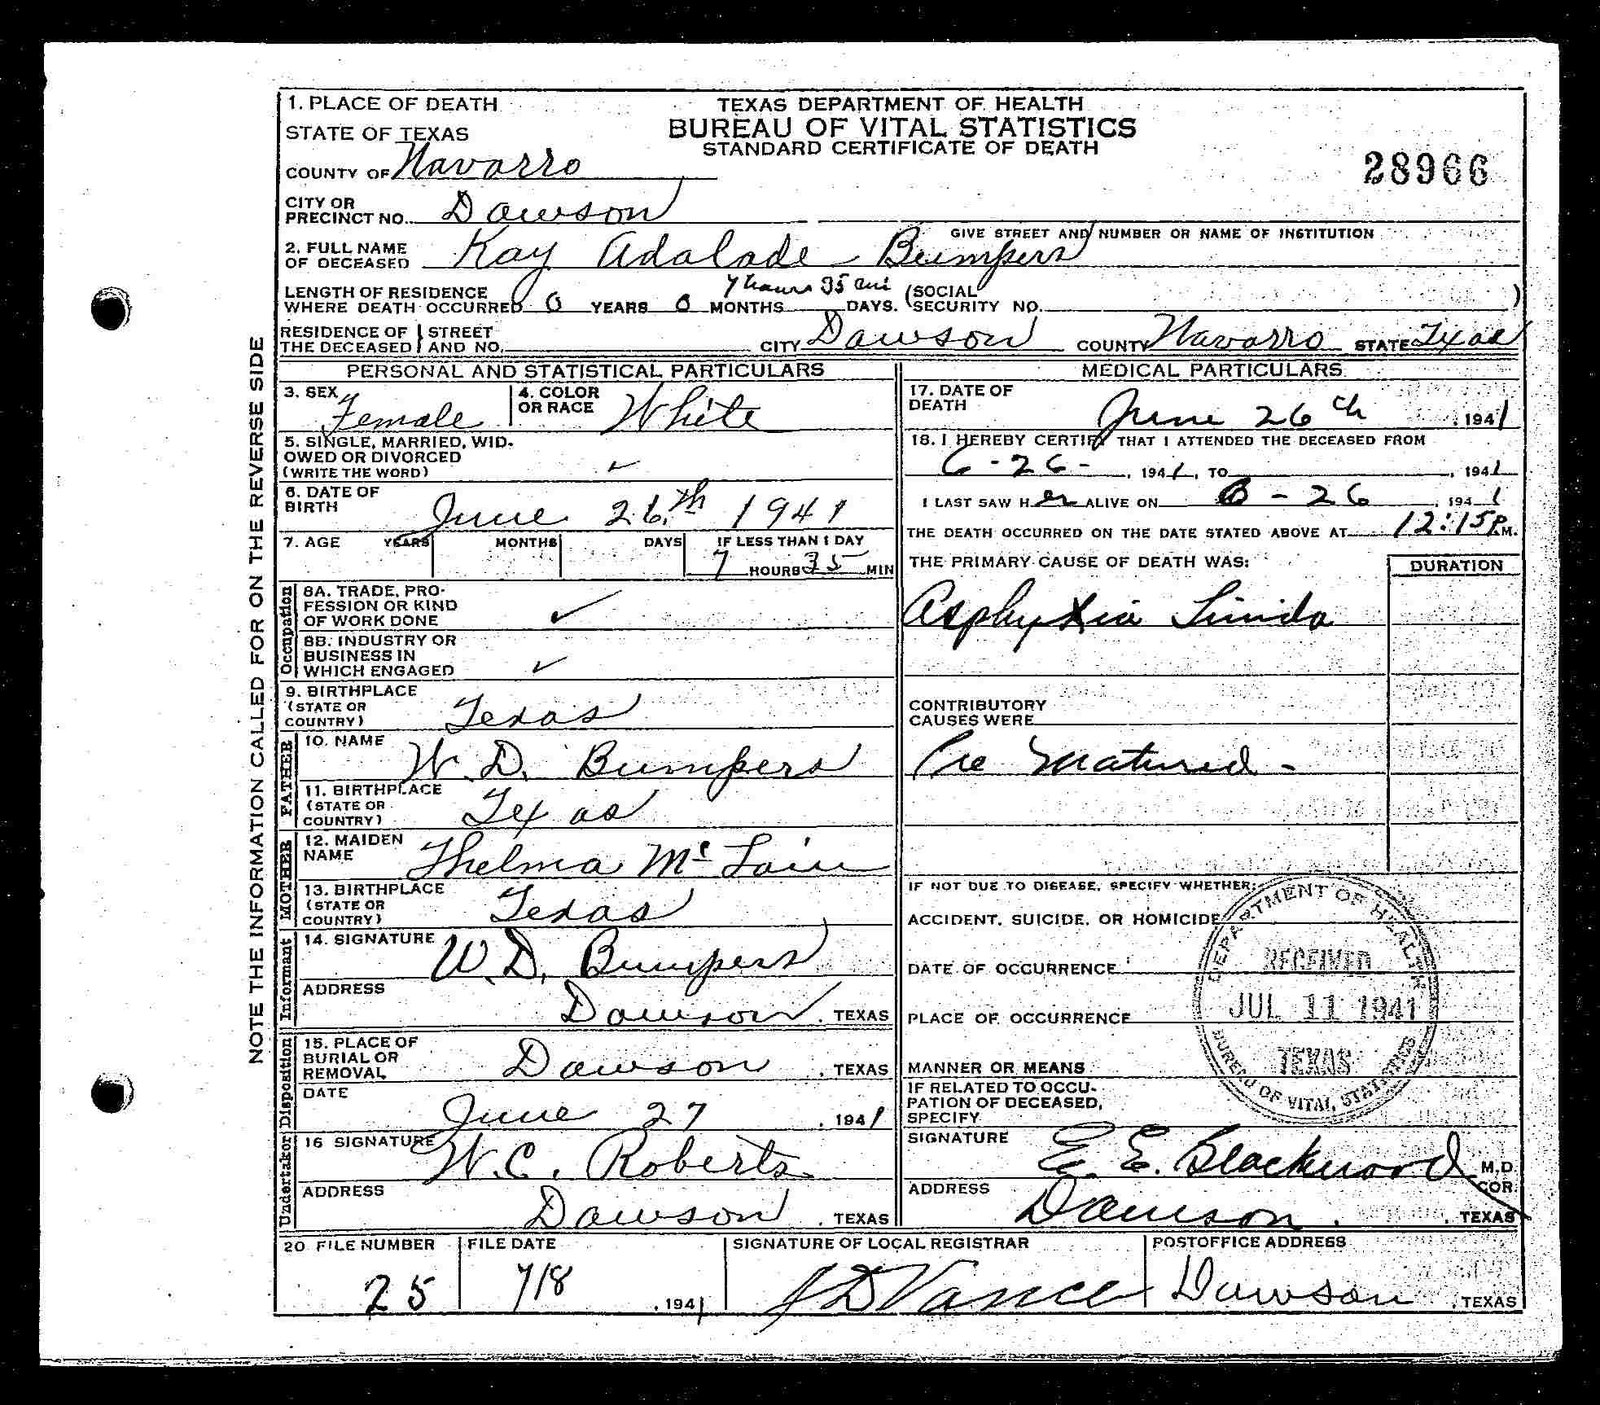 1. PLACE OF DEATH
STATE OF TEXAS
COUNTY OF Navarro
TEXAS DEPARTMENT OF HEALTH
BUREAU OF VITAL STATISTICS
STANDARD CERTIFICATE OF DEATH
28966
CITY OR
PRECINCT NO. Dawson
GIVE STREET AND NUMBER OR NAME OF INSTITUTION
2. FULL NAME
OF DECEASED Kay Adalade Bumpers
LENGTH OF RESIDENCE
WHERE DEATH OCCURRED 0 YEARS 0 MONTHS 7 hours 35 DAYS. (SOCIAL
SECURITY NO. )
RESIDENCE OF THE DECEASED STREET AND NO. CITY Dawson COUNTY Navarro STATE Texas
PERSONAL AND STATISTICAL PARTICULARS
3. SEX Female
4. COLOR
OR RACE White
5. SINGLE, MARRIED, WID-
OWED OR DIVORCED
(WRITE THE WORD) ✓
6. DATE OF
BIRTH June 26th 1941
7. AGE YEARS MONTHS DAYS IF LESS THAN 1 DAY
7 HOURS 35 MIN
Occupation
8A. TRADE, PRO-
FESSION OR KIND
OF WORK DONE ✓
8B. INDUSTRY OR
BUSINESS IN
WHICH ENGAGED ✓
9. BIRTHPLACE
(STATE OR
COUNTRY) Texas
FATHER
10. NAME W. D. Bumpers
11. BIRTHPLACE
(STATE OR
COUNTRY) Texas
MOTHER
12. MAIDEN
NAME Thelma McLain
13. BIRTHPLACE
(STATE OR
COUNTRY) Texas
Informant
14. SIGNATURE W. D. Bumpers
ADDRESS Dawson, TEXAS
Disposition
15. PLACE OF
BURIAL OR
REMOVAL Dawson, TEXAS
DATE June 27, 1941
Undertaker
16 SIGNATURE W. C. Roberts
ADDRESS Dawson, TEXAS
MEDICAL PARTICULARS
17. DATE OF
DEATH June 26th, 1941
18. I HEREBY CERTIFY THAT I ATTENDED THE DECEASED FROM
6-26-, 1941, TO , 1941
I LAST SAW HER ALIVE ON 6-26, 1941
THE DEATH OCCURRED ON THE DATE STATED ABOVE AT 12:15 P.M.
THE PRIMARY CAUSE OF DEATH WAS: DURATION
Asphyxia
CONTRIBUTORY
CAUSES WERE
Pre Matured -
IF NOT DUE TO DISEASE, SPECIFY WHETHER:
ACCIDENT, SUICIDE, OR HOMICIDE
DATE OF OCCURRENCE
PLACE OF OCCURRENCE
MANNER OR MEANS
IF RELATED TO OCCU-
PATION OF DECEASED,
SPECIFY
DEPARTMENT OF HEALTH
RECEIVED
JUL 11 1941
TEXAS
BUREAU OF VITAL STATISTICS
SIGNATURE E. E. Blackwood M.D.
COR.
ADDRESS Dawson, TEXAS
20 FILE NUMBER 25
FILE DATE 7/8, 1941
SIGNATURE OF LOCAL REGISTRAR J D Vance
POSTOFFICE ADDRESS Dawson, TEXAS
NOTE THE INFORMATION CALLED FOR ON THE REVERSE SIDE